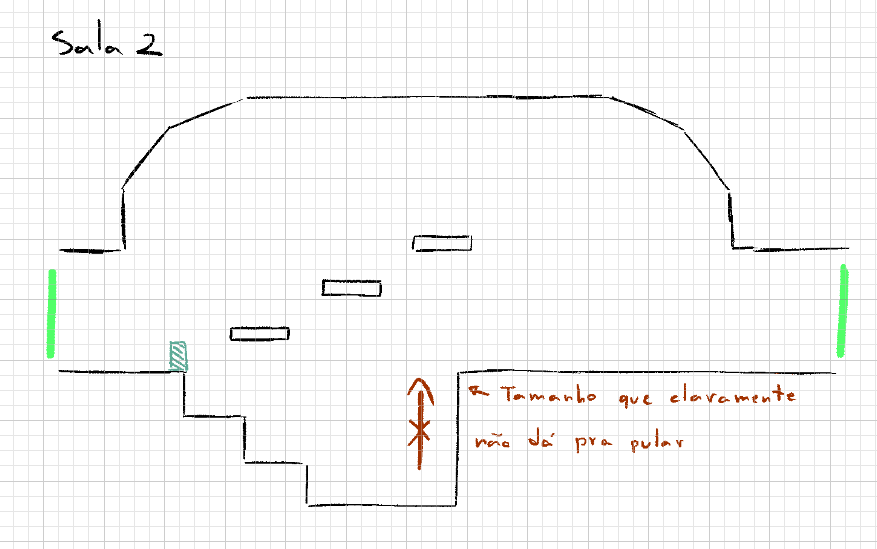 Sala 2
Tamanho que claramente
não dá pra pular